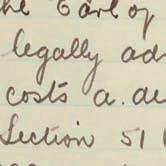 the Earl of
legally ad
costs a. de
Section 51